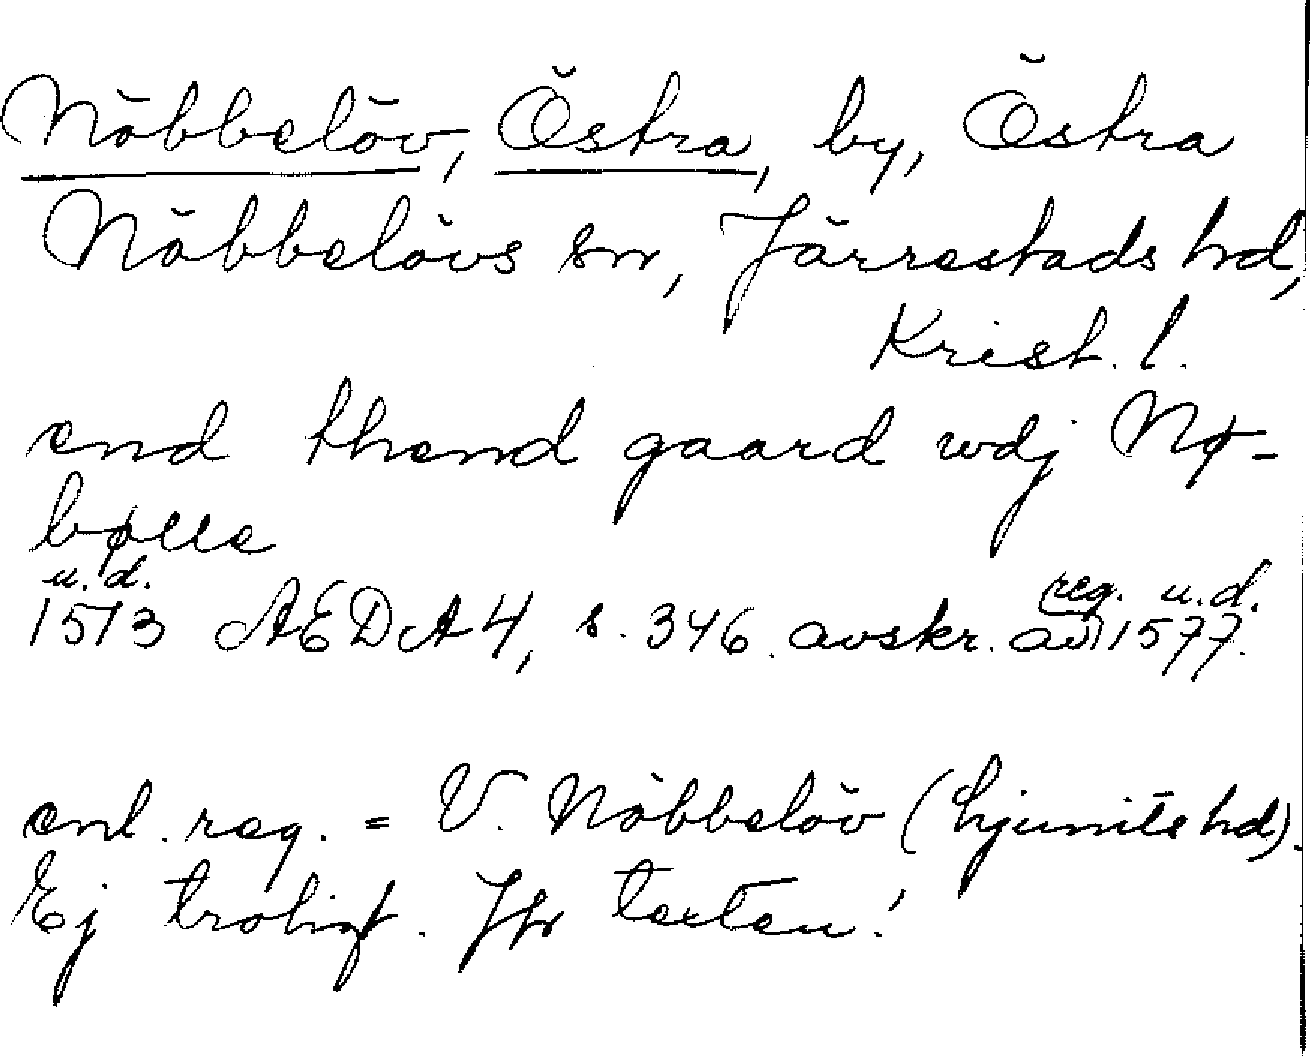 Nöbbelöv, Östra, by, Östra
Nöbbelövs sn, Järrestads hd,
Krist. l.
end thend gaard wdj Nø-
bølle
u.d. reg. u.d.
1573 AEDA4, s. 346. avskr. av 1577.
enl. reg. = V. Nöbbelöv (Ljunits hd).
Ej troligt. Jfr texten!